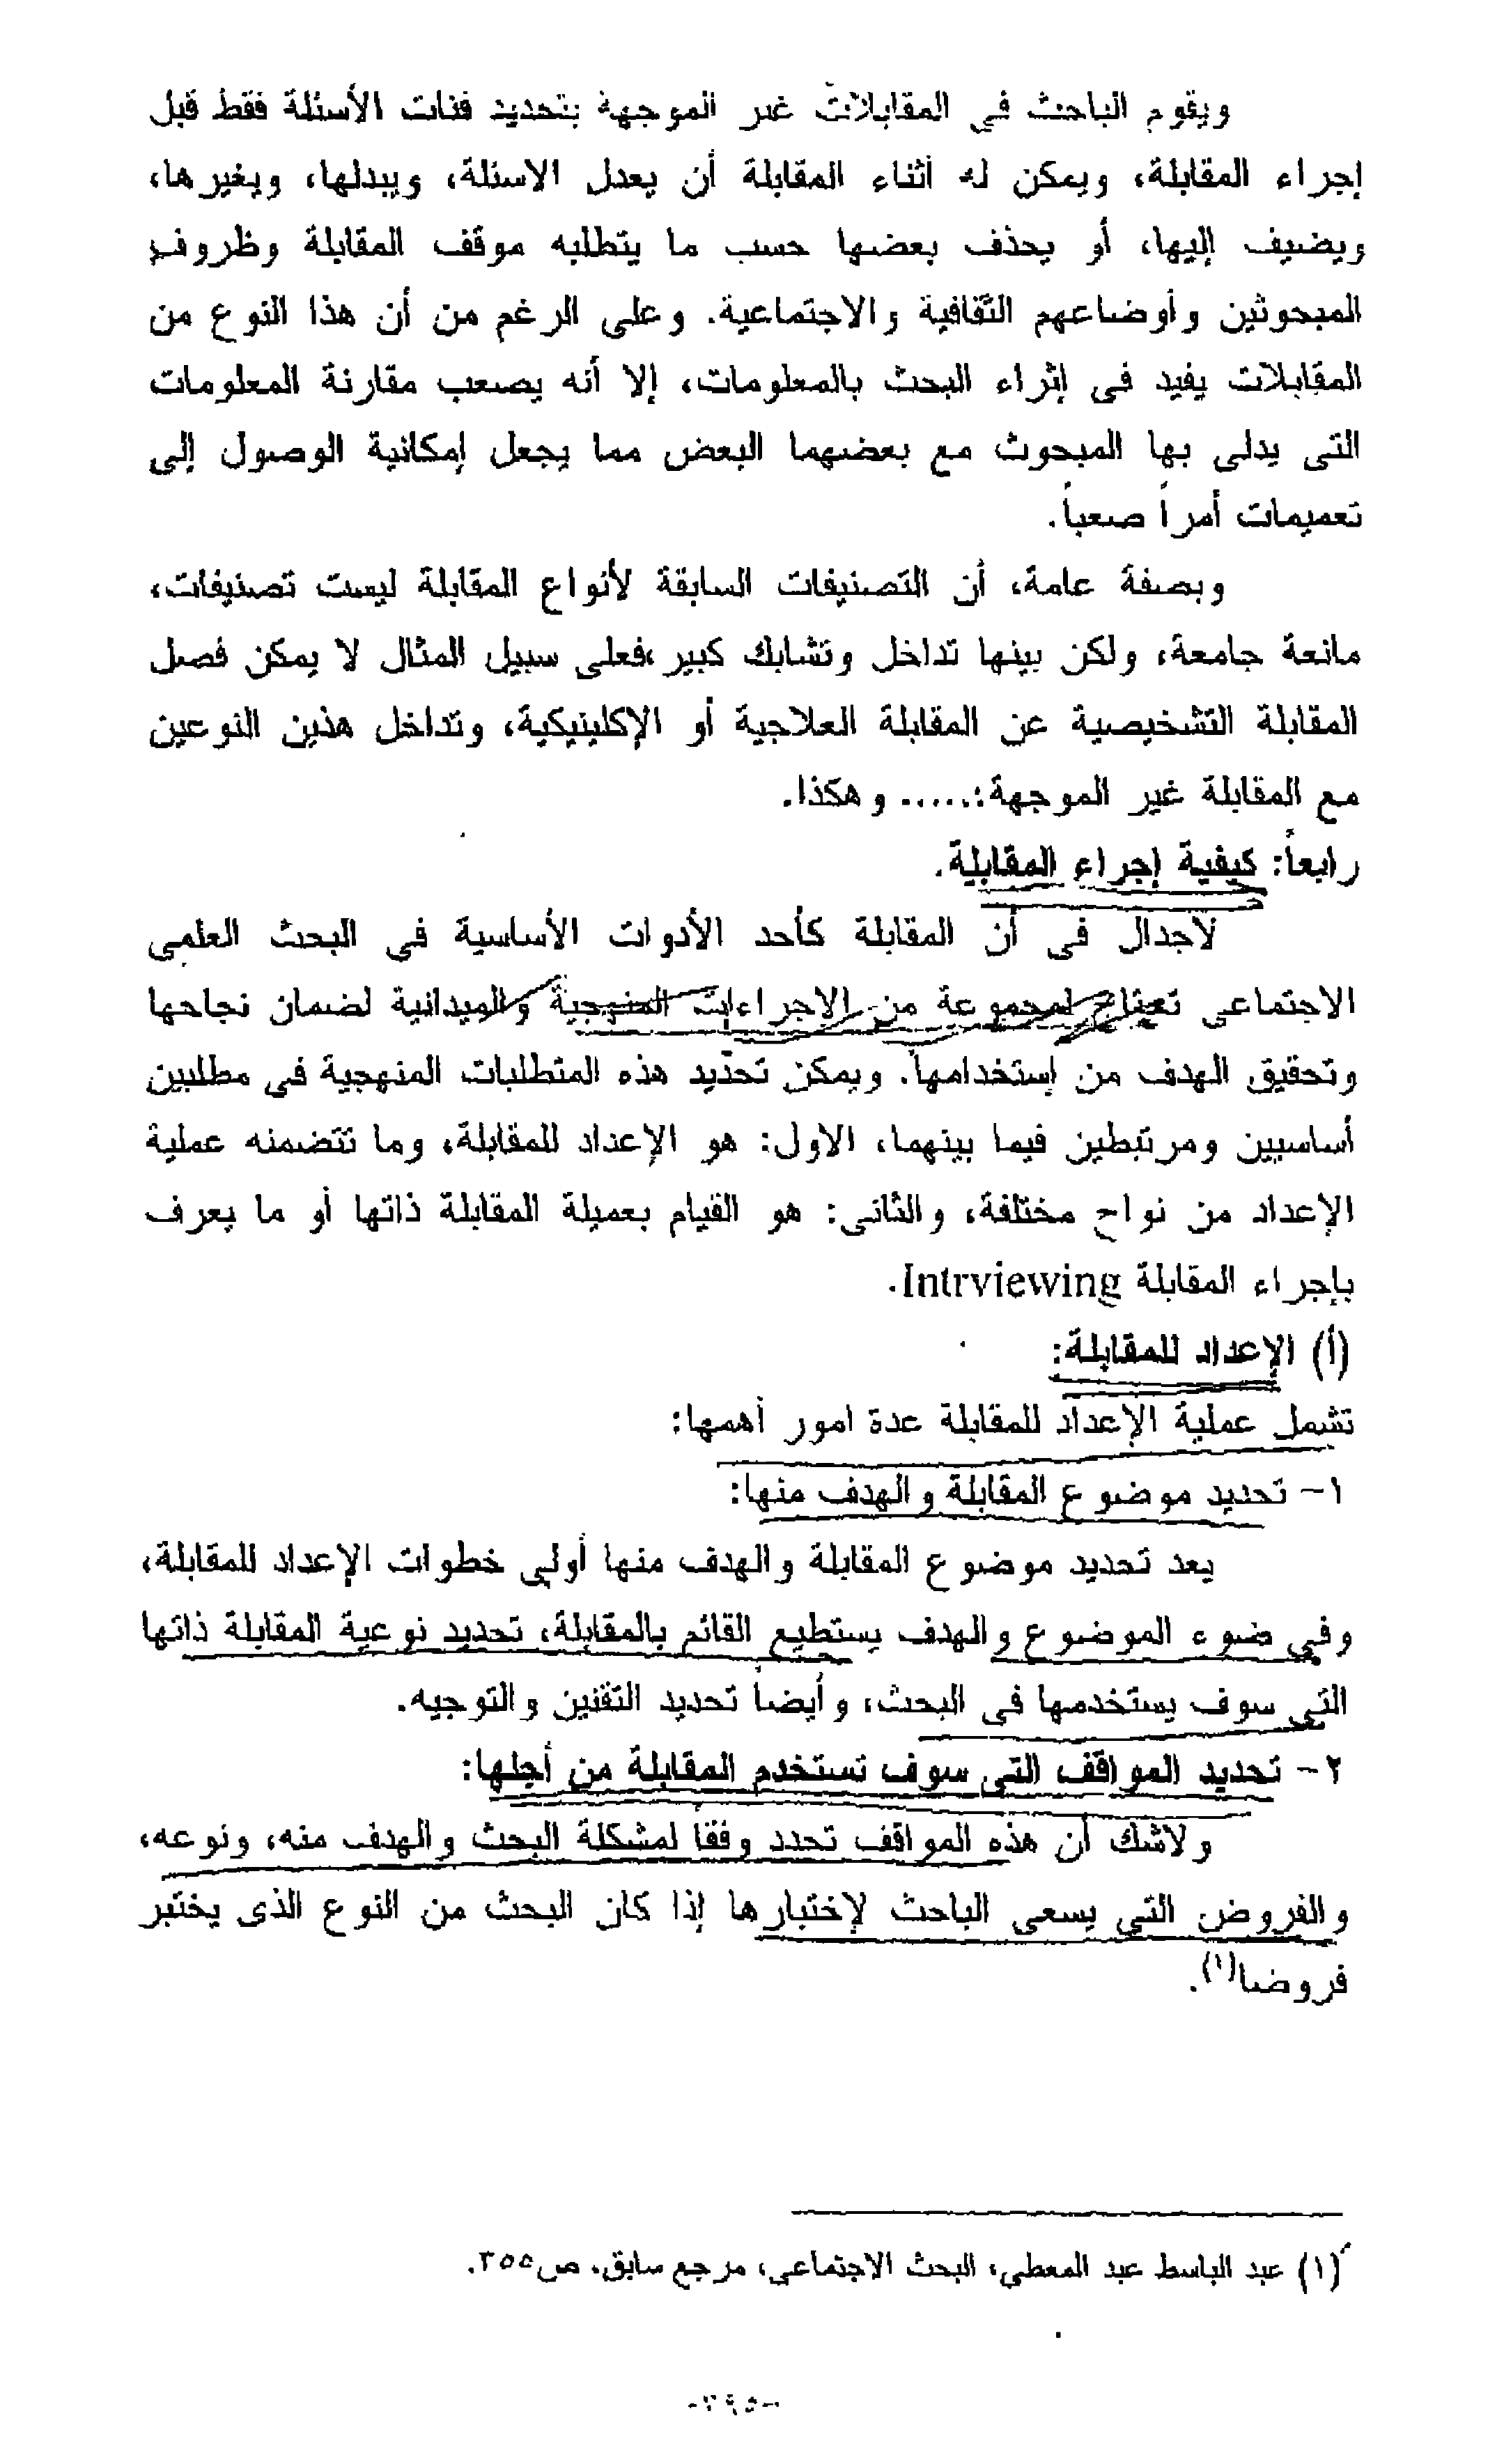 ويقوم الباحث في المقابلات غير الموجهة بتحديد فئات الأسئلة فقط قبل
إجراء المقابلة، ويمكن له أثناء المقابلة أن يعدل الاسئلة، ويبدلها، ويغيرها،
ويضيف إليها، أو يحذف بعضها حسب ما يتطلبه موقف المقابلة وظروف
المبحوثين وأوضاعهم الثقافية والاجتماعية. وعلى الرغم من أن هذا النوع من
المقابلات يفيد فى إثراء البحث بالمعلومات، إلا أنه يصعب مقارنة المعلومات
التى يدلى بها المبحوث مع بعضهما البعض مما يجعل إمكانية الوصول إلى
تعميمات أمراً صعباً.
وبصفة عامة، أن التصنيفات السابقة لأنواع المقابلة ليست تصنيفات،
مانعة جامعة، ولكن بينها تداخل وتشابك كبير ،فعلى سبيل المثال لا يمكن فصل
المقابلة التشخيصية عن المقابلة العلاجية أو الإكلينيكية، وتداخل هذين النوعين
مع المقابلة غير الموجهة؛..... وهكذا.
رابعاً: كيفية إجراء المقابلة.
لاجدال فى أن المقابلة كأحد الأدوات الأساسية فى البحث العلمى
الاجتماعى تحتاج لمجموعة من الاجراءات المنهجية والميدانية لضمان نجاحها
وتحقيق الهدف من إستخدامها. ويمكن تحديد هذه المتطلبات المنهجية فى مطلبين
أساسيين ومرتبطين فيما بينهما، الاول: هو الإعداد للمقابلة، وما تتضمنه عملية
الإعداد من نواح مختلفة، والثانى: هو القيام بعميلة المقابلة ذاتها أو ما يعرف
بإجراء المقابلة Intrviewing.
(أ) الإعداد للمقابلة:
تشمل عملية الإعداد للمقابلة عدة امور أهمها:
١- تحديد موضوع المقابلة والهدف منها:
يعد تحديد موضوع المقابلة والهدف منها أولى خطوات الإعداد للمقابلة،
وفى ضوء الموضوع والهدف يستطيع القائم بالمقابلة، تحديد نوعية المقابلة ذاتها
التى سوف يستخدمها فى البحث، وأيضاً تحديد التقنين والتوجيه.
٢- تحديد المواقف التى سوف تستخدم المقابلة من أجلها:
ولاشك أن هذه المواقف تحدد وفقاً لمشكلة البحث والهدف منه، ونوعه،
والفروض التى يسعى الباحث لإختبارها إذا كان البحث من النوع الذى يختبر
فروضا(١).
(١) عبد الباسط عبد المعطي، البحث الاجتماعى، مرجع سابق، ص٣٥٥.
-٣٩٥-